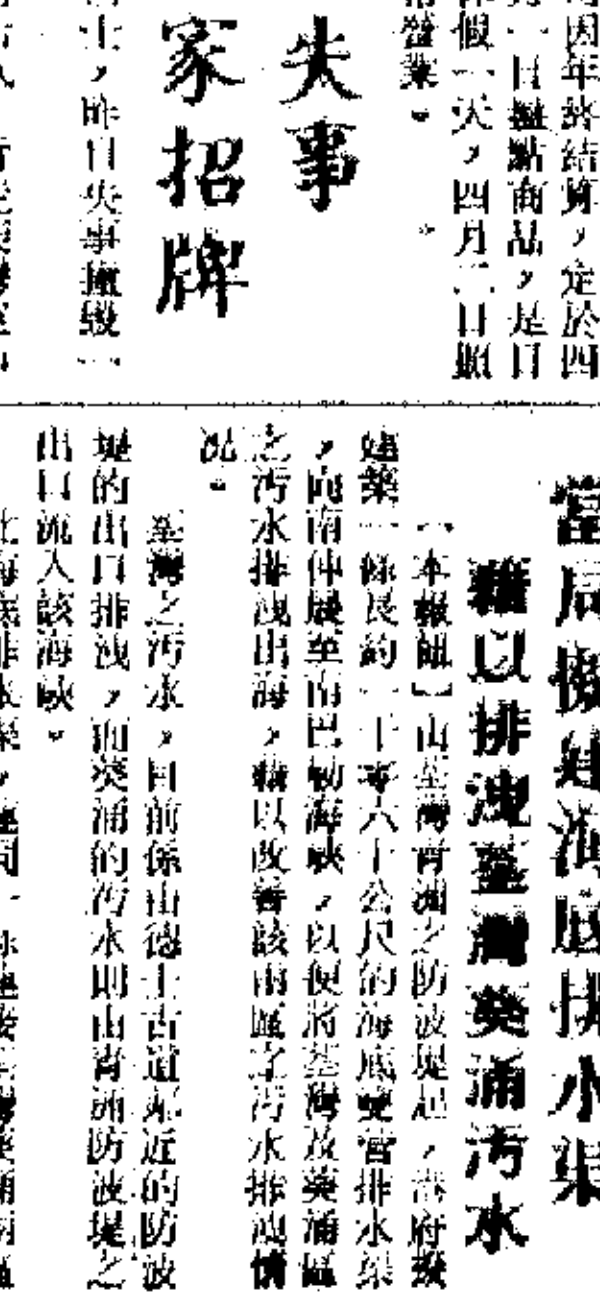 因年終結算，定於四
一日盤點商品，是日
休假一天，四月二日照
常營業。
失事
家招牌
士，昨日失事撞毀一
當局擬建海底排水渠
藉以排洩荃灣葵涌污水
（本報訊）由荃灣青洲之防波堤起，當府擬
建築一條長約一千零六十公尺的海底雙管排水渠
，向南伸展至南巴勒海峽，以便將荃灣及葵涌區
之污水排洩出海，藉以改善該兩區之污水排洩情
況。
荃灣之污水，目前係由德士古道鄰近的防波
堤的出口排洩，而葵涌的污水則由青洲防波堤之
出口流入該海峽。